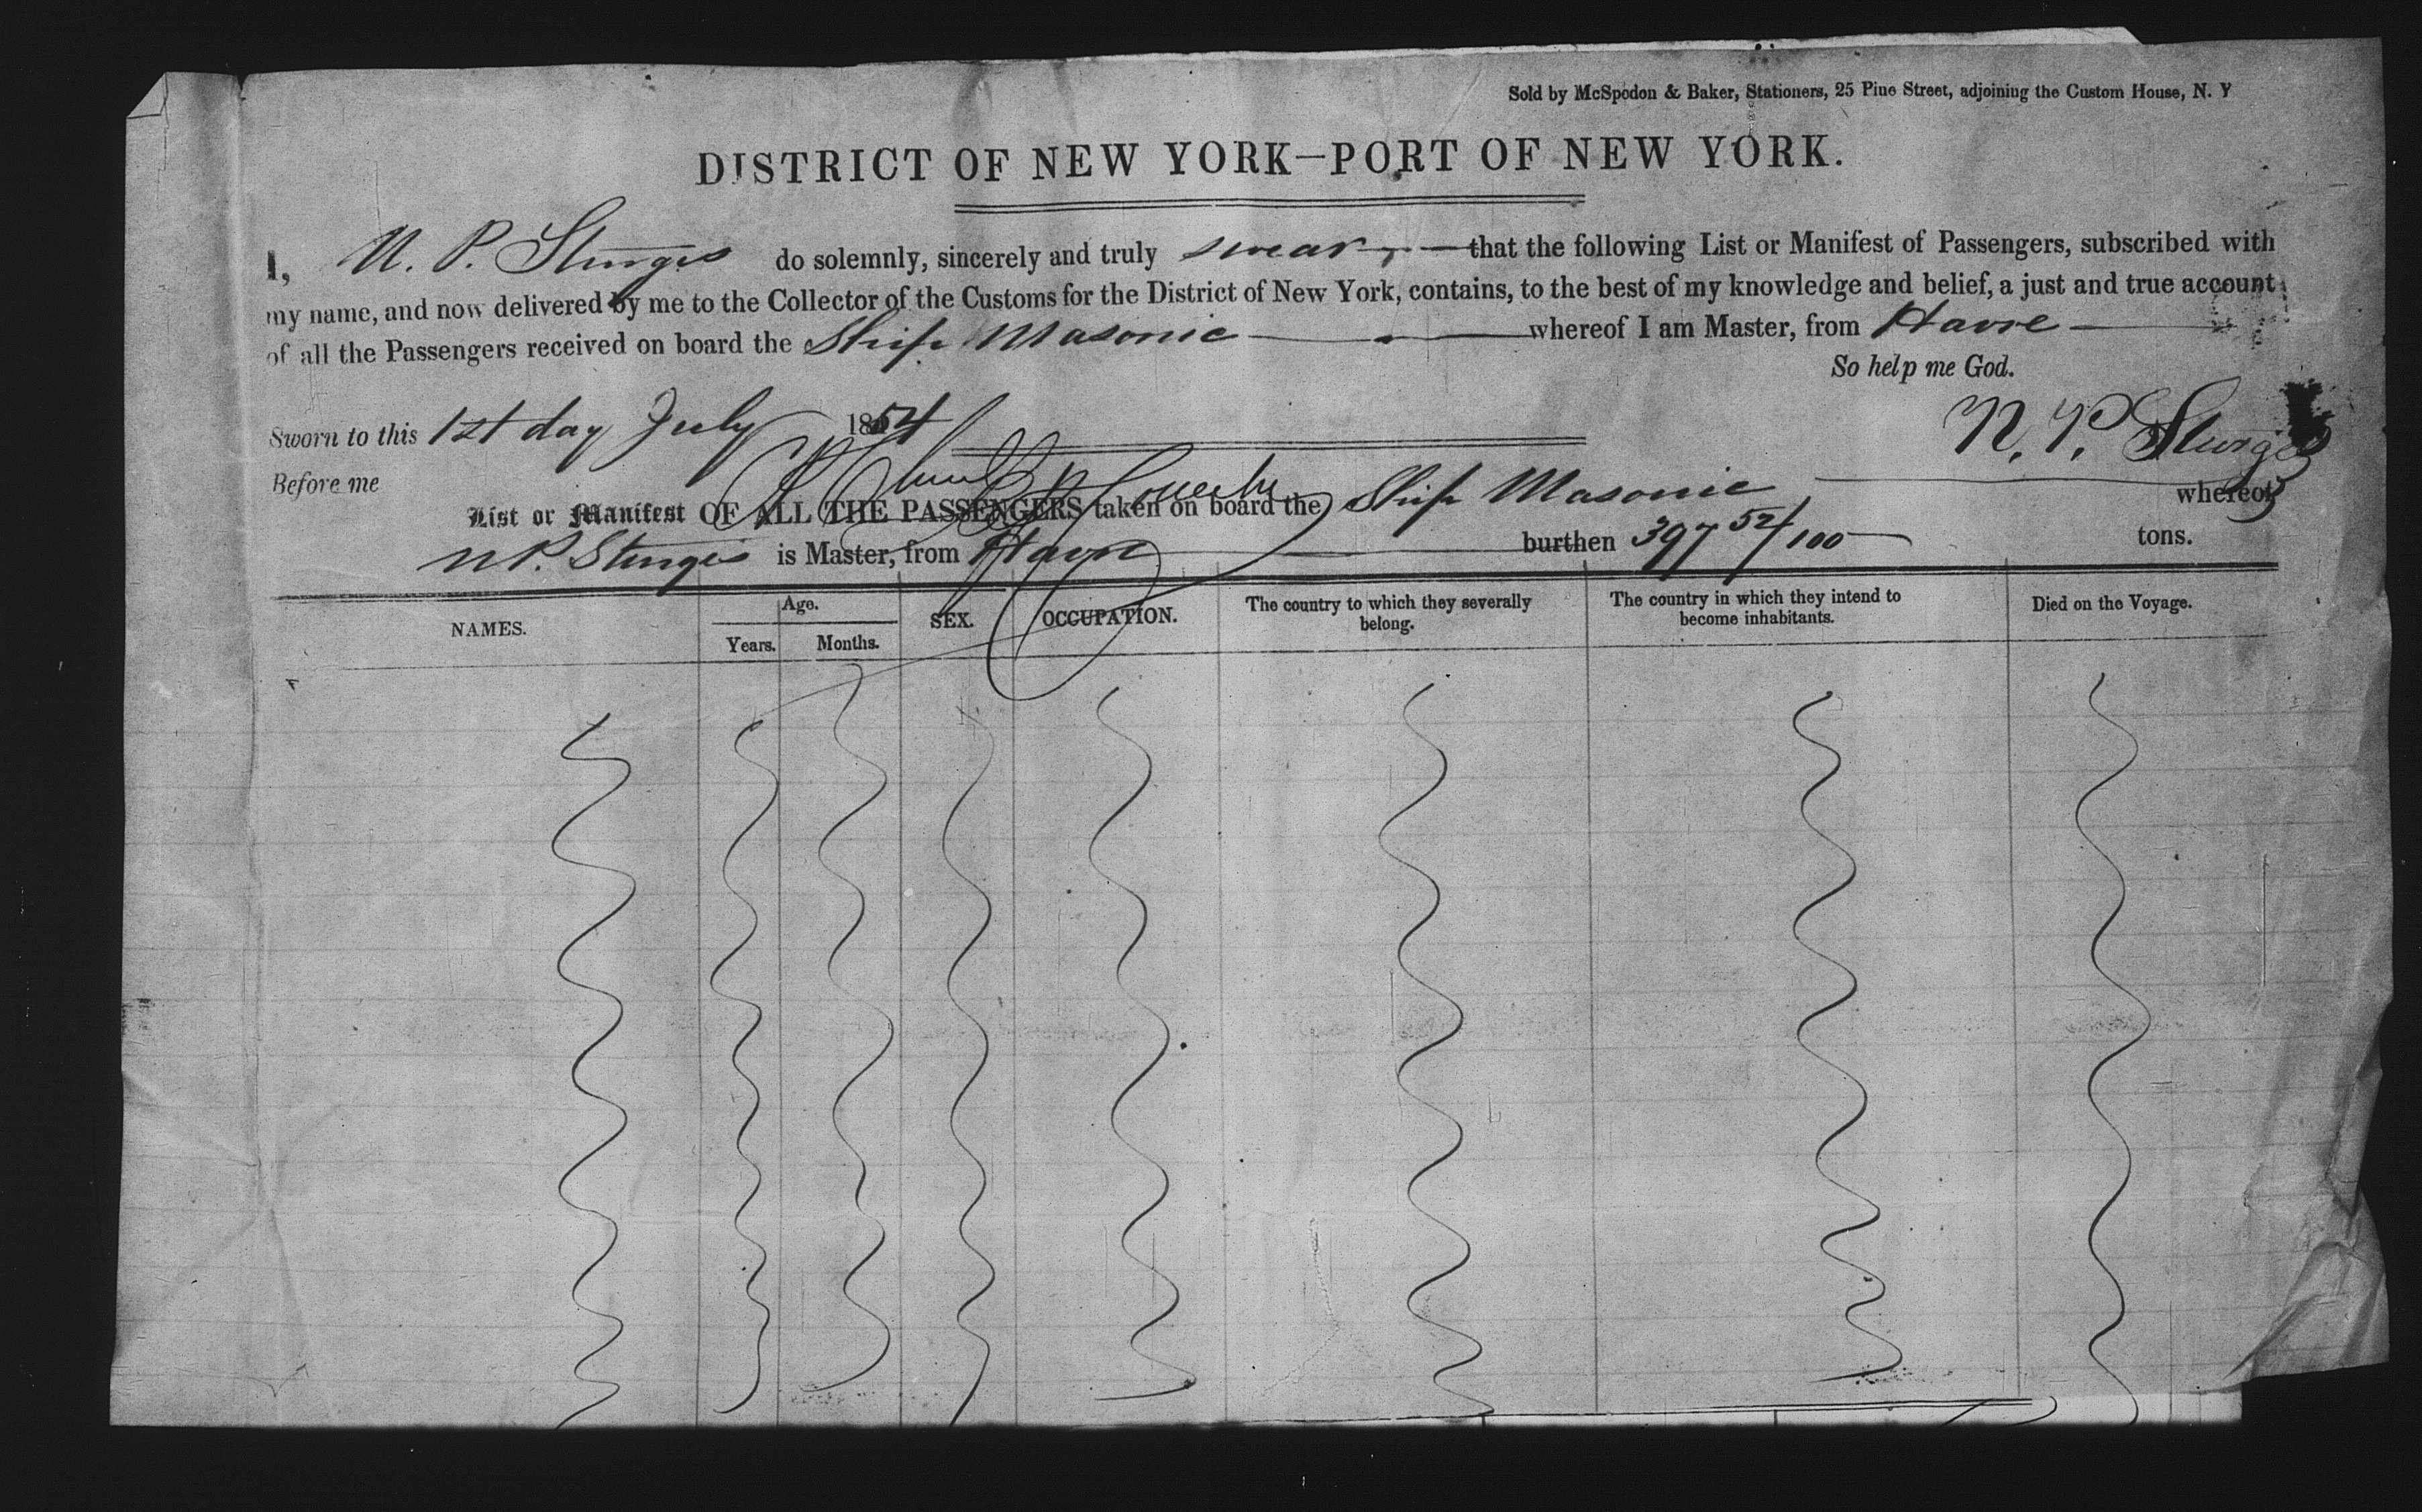 Sold by McSpedon & Baker, Stationers, 25 Pine Street, adjoining the Custom House, N. Y
DISTRICT OF NEW YORK—PORT OF NEW YORK.
I, N. P. Sturges do solemnly, sincerely and truly swear, — that the following List or Manifest of Passengers, subscribed with
my name, and now delivered by me to the Collector of the Customs for the District of New York, contains, to the best of my knowledge and belief, a just and true account
of all the Passengers received on board the Ship Masonic — whereof I am Master, from Havre —
So help me God.
Sworn to this 1st day July 1854
N. P. Sturges
Before me
List or Manifest OF ALL THE PASSENGERS taken on board the Ship Masonic whereof
N P. Sturges is Master, from Havre — burthen 397 52/100 — tons.
NAMES. Age. SEX. OCCUPATION. The country to which they severally belong. The country in which they intend to become inhabitants. Died on the Voyage.
Years. Months.